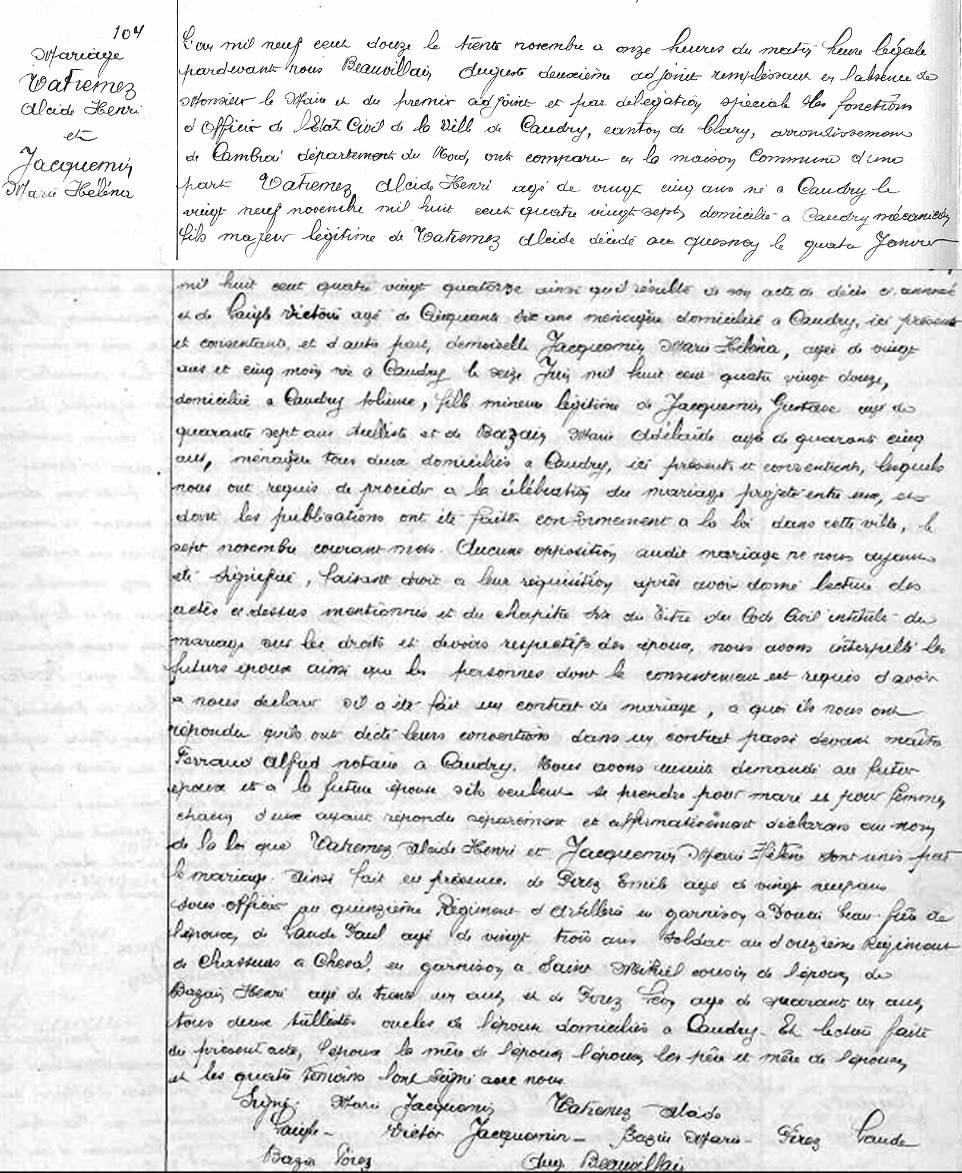 104
Mariage
Vatremez
Alcide Henri
et
Jacquemin
Marie Héléna
L'an mil neuf cent douze le trente novembre a onze heures du matin heure légale
pardevant nous Beauvillain Auguste deuxième adjoint remplissant en l'absence de
Monsieur le Maire et du premier adjoint et par délégation spéciale les fonctions
d'Officier de l'Etat Civil de la Ville de Caudry, canton de Clary, arrondissement
de Cambrai département du Nord, ont comparu en la maison Commune d'une
part Vatremez Alcide Henri agé de vingt cinq ans né a Caudry le
vingt neuf novembre mil huit cent quatre vingt sept, domicilié a Caudry mécanicien,
fils majeur légitime de Vatremez Alcide décédé au Quesnoy le quatre Janvier
mil huit cent quatre vingt quatorze ainsi qu'il résulte de son acte de décès ci annexé
et de Laigle Victoire agé de Cinquante six ans ménagère domicilié a Caudry, ici présente
et consentante, et d'autre part, demoiselle Jacquemin Marie Héléna, agée de vingt
ans et cinq mois née a Caudry le seize Juin mil huit cent quatre vingt douze,
domicilié a Caudry, fille mineure légitime de Jacquemin Gustave agé de
quarante sept ans tulliste et de Bazain Marie Adélaïde agée de quarante cinq
ans, ménagère tous deux domiciliés a Caudry, ici présents et consentants, lesquels
nous ont requis de procéder a la célébration du mariage projeté entre eux, et
dont les publications ont été faites conformément a la loi dans cette ville, le
sept novembre courant mois. Aucune opposition audit mariage ne nous ayant
été signifiée, faisant droit a leur réquisition après avoir donné lecture des
actes ci dessus mentionnés et du chapitre six du titre du Code Civil intitulé du
mariage sur les droits et devoirs respectifs des époux, nous avons interpellé les
futurs époux ainsi que les personnes dont le consentement est requis d'avoir
a nous déclarer s'il a été fait un contrat de mariage, a quoi ils nous ont
répondu qu'ils ont dicté leurs conventions dans un contrat passé devant maître
Ferraud Alfred notaire a Caudry. Nous avons ensuite demandé au futur
époux et a la future épouse s'ils veulent se prendre pour mari et pour femme,
chacun d'eux ayant répondu séparément et affirmativement déclarons au nom
de la loi que Vatremez Alcide Henri et Jacquemin Marie Hélène sont unis par
le mariage. Ainsi fait en présence de Pérez Emile agé de vingt neuf ans
sous officier au quinzième Régiment d'Artillerie en garnison a Douai beau frère de
l'époux, de Laude Paul agé de vingt trois ans soldat au douzième Régiment
de chasseurs a Cheval, en garnison a Saint Mihiel cousin de l'époux, de
Bazain Henri agé de trente un ans, et de Pérez Léon agé de quarante un ans,
tous deux tullistes oncles de l'époux domiciliés a Caudry. Et lecture faite
du présent acte, l'époux la mère de l'époux, l'épouse, les père et mère de l'épouse,
et les quatre témoins l'ont signé avec nous.
Signé: Marie Jacquemin Vatremez Alcide
Laigle - Victor Jacquemin - Bazin Marie - Pérez Laude
Bazin Pérez Aug Beauvillain